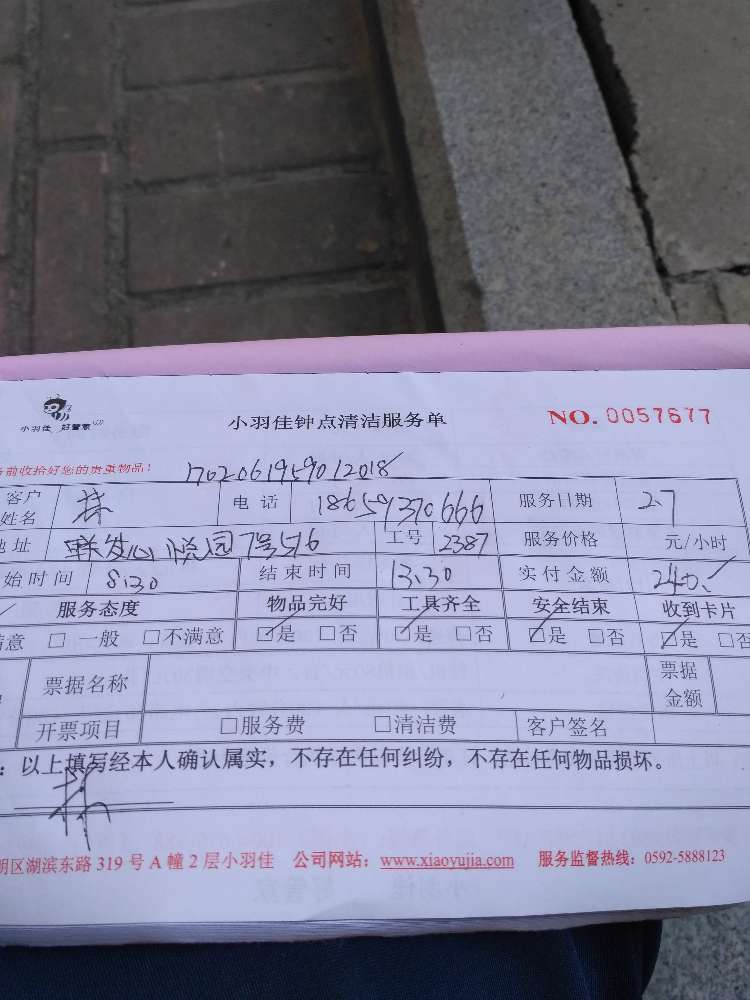 小羽佳 好管家
小羽佳钟点清洁服务单
NO. 0057677
前收拾好您的贵重物品！
1702061959012018
客户姓名 林 电话 18659370666 服务日期 2.7
地址 联发心悦园7号516 工号 2387 服务价格 元/小时
始时间 8:30 结束时间 13:30 实付金额 240.
服务态度 物品完好 工具齐全 安全结束 收到卡片
满意 □ 一般 □不满意 ☑是 □否 ☑是 □否 ☑是 □否 ☑是 □否
票据名称 票据金额
开票项目 □服务费 □清洁费 客户签名
：以上填写经本人确认属实，不存在任何纠纷，不存在任何物品损坏。
林
明区湖滨东路 319 号 A 幢 2 层小羽佳 公司网站：www.xiaoyujia.com 服务监督热线：0592-5888123